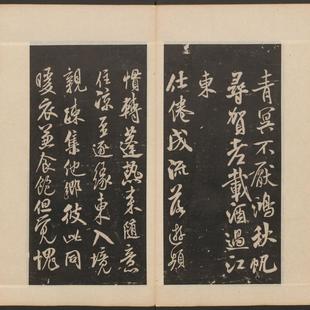 青冥不厭鴻秋帆
尋賀老載酒過江
東
仕倦成流落游頻
慣轉蓬熱來隨意
住涼至逐緣東入境
親疎集他鄉彼此同
暖衣兼食飽但覺愧